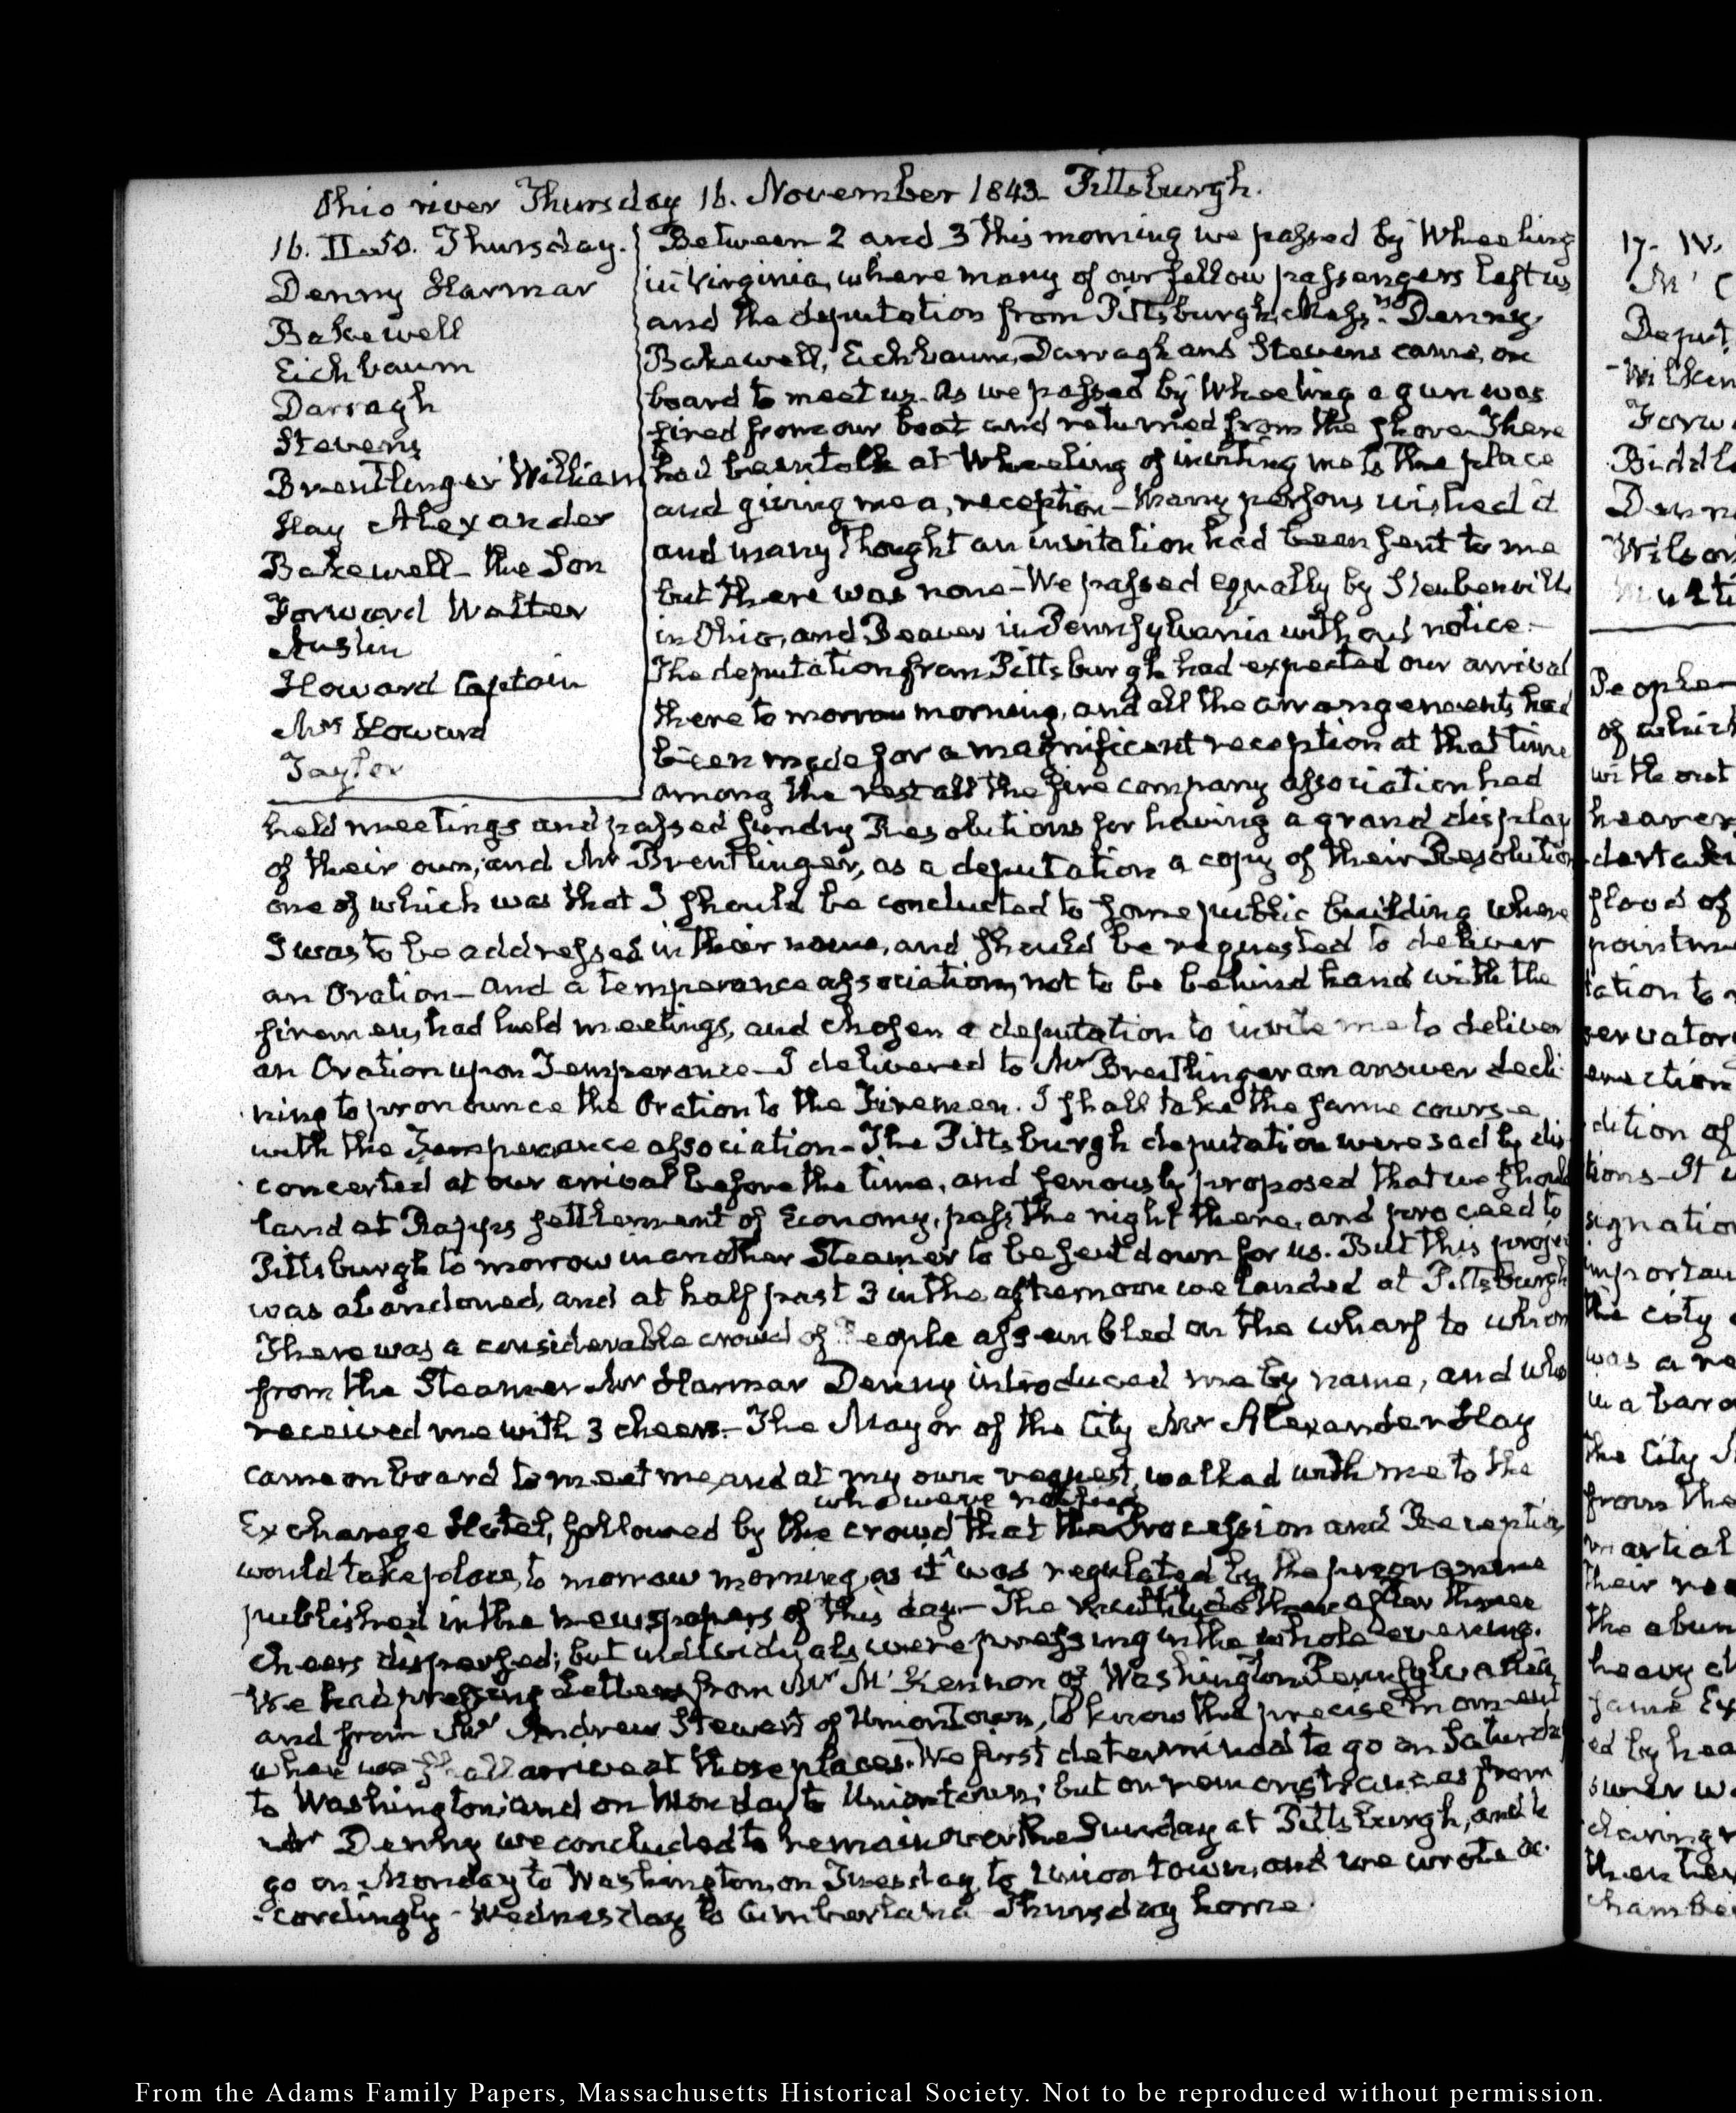 Ohio river Thursday 16. November 1843. Pittsburgh.
16. II.50. Thursday.
Denny Harmar
Bakewell
Eichbaum
Darragh
Stevens
Brentlinger William
Hay Alexander
Bakewell - the Son
Forward Walter
Austin
Howard Captain
Mrs Howard
Taylor
Between 2 and 3 this morning we passed by Wheeling
in Virginia, where many of our fellow passengers left us
and the deputation from Pittsburgh, Messrs. Denny
Bakewell, Eichbaum, Darragh and Stevens came, on
board to meet us. As we passed by Wheeling a gun was
fired from our boat and returned from the shore. There
had been talk at Wheeling of inviting me to the place
and giving me a reception - Many persons wished it
and many thought an invitation had been sent to me
but there was none - We passed equally by Steubenville
in Ohio, and Beaver in Pennsylvania without notice. -
The deputation from Pittsburgh had expected our arrival
there to morrow morning, and all the arrangements had
been made for a magnificent reception at that time
among the rest all the fire company association had
held meetings and passed sundry Resolutions for having a grand display
of their own, and Mr Brentlinger, as a deputation a copy of their Resolution
one of which was that I should be conducted to some public building where
I was to be addressed in their name, and should be requested to deliver
an Oration - and a temperance association, not to be behind hand with the
firemen, had held meetings, and chosen a deputation to invite me to deliver
an Oration upon Temperance - I delivered to Mr Brentlinger an answer decli
ning to pronounce the Oration to the Firemen. I shall take the same course
with the Temperance association - The Pittsburgh deputation were sadly dis
concerted at our arrival before the time, and seriously proposed that we should
land at Rapps settlement of Economy, pass the night there, and proceed to
Pittsburgh to morrow in another Steamer to be sent down for us. But this projec
was abandoned, and at half past 3 in the afternoon we landed at Pittsburgh
There was a considerable crowd of People assembled on the wharf to whom
from the Steamer Mr Harmar Denny introduced me by name, and who
received me with 3 cheers. - The Mayor of the City Mr Alexander Hay
came on board to meet me, and at my own request, walked with me to the
who were notified
Exchange Hotel, followed by the crowd that the Procession and Reception
would take place, to morrow morning, as it was regulated by the programme
published in the newspapers of this day - The multitude after three
cheers dispersed; but individuals were pressing in the whole evening.
We had pressing Letters from Mr M'Kennon of Washington Pennsylvania
and from Mr Andrew Stewart of Uniontown, to know the precise moment
when we shall arrive at those places. We first determined to go on Saturday
to Washington; and on Monday to Uniontown; but on remonstrances from
Mr Denny we concluded to remain over the Sunday at Pittsburgh, and to
go on Monday to Washington, on Tuesday to Union town, and we wrote ac
cordingly - Wednesday to Cumberland Thursday home.
17. IV.
M' C
Deput
Wilkin
Forwa
Biddle
Denn
Wilson
People
of which
with out
hearer
flood of
pointm
tation to
servator
erection
dition of
tions - It
signation
importan
the city
was a re
in a baro
the City
from the
martial
their
the abun
heavy
same Ex
ed by hea
chamber
From the Adams Family Papers, Massachusetts Historical Society. Not to be reproduced without permission.